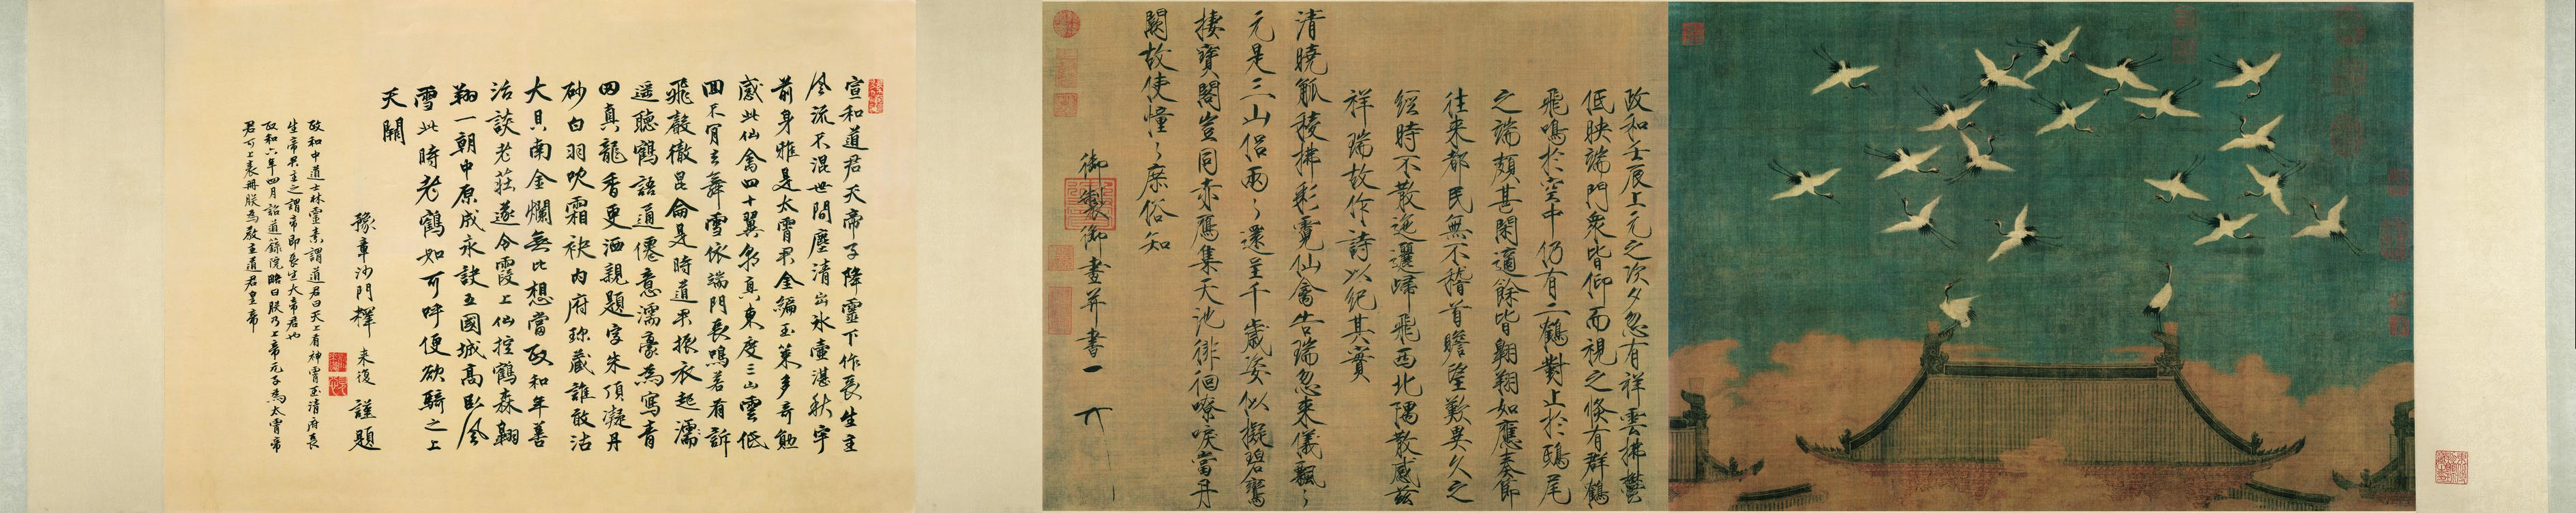 政和壬辰上元之次夕忽有祥雲拂鬱
低映端門衆皆仰而視之倐有群鶴
飛鳴於空中仍有二鶴對止於鴟尾
之端頗甚閑適餘皆翱翔如應奏節
往来都民無不稽首瞻望歎異久之
經時不散迤邐歸飛西北隅散感茲
祥瑞故作詩以紀其實
清曉觚稜拂彩霓仙禽告瑞忽来儀飄〻
元是三山侣兩〻還呈千歲姿似擬碧鸞
棲寶閣豈同赤鴈集天池徘徊嘹唳當丹
闕故使憧〻庶俗知
御製御畫并書
宣和道君天帝子降靈下作長生主
風流不混世間塵清出氷壷湛秋宇
前身雅是太霄君金編玉䇿多奇勛
感此仙禽四十翼来真東度三山雲低
回不肯去舞雪依端門長鳴若有訴
飛聲徹昆侖是時道君振衣起
遥聴鶴語通僊意濡毫為寫青
田真龍香更洒親題字朱頂凝丹
砂白羽吹霜袂内府珎藏誰敢沽
大貝南金爛無比想當政和年善
治談老莊遂令霞上仙控鶴森翱
翔一朝中原成永訣五國城髙卧風
雪此時老鶴如可呼便欲騎之上
天闕
豫章沙門釋来復謹題
政和中道士林靈素謂道君曰天上有神霄玉清府長
生帝君主之謂帝即長生大帝君也
政和六年四月詔道籙院畧曰朕乃上帝元子為太霄帝
君可上表冊朕為教主道君皇帝